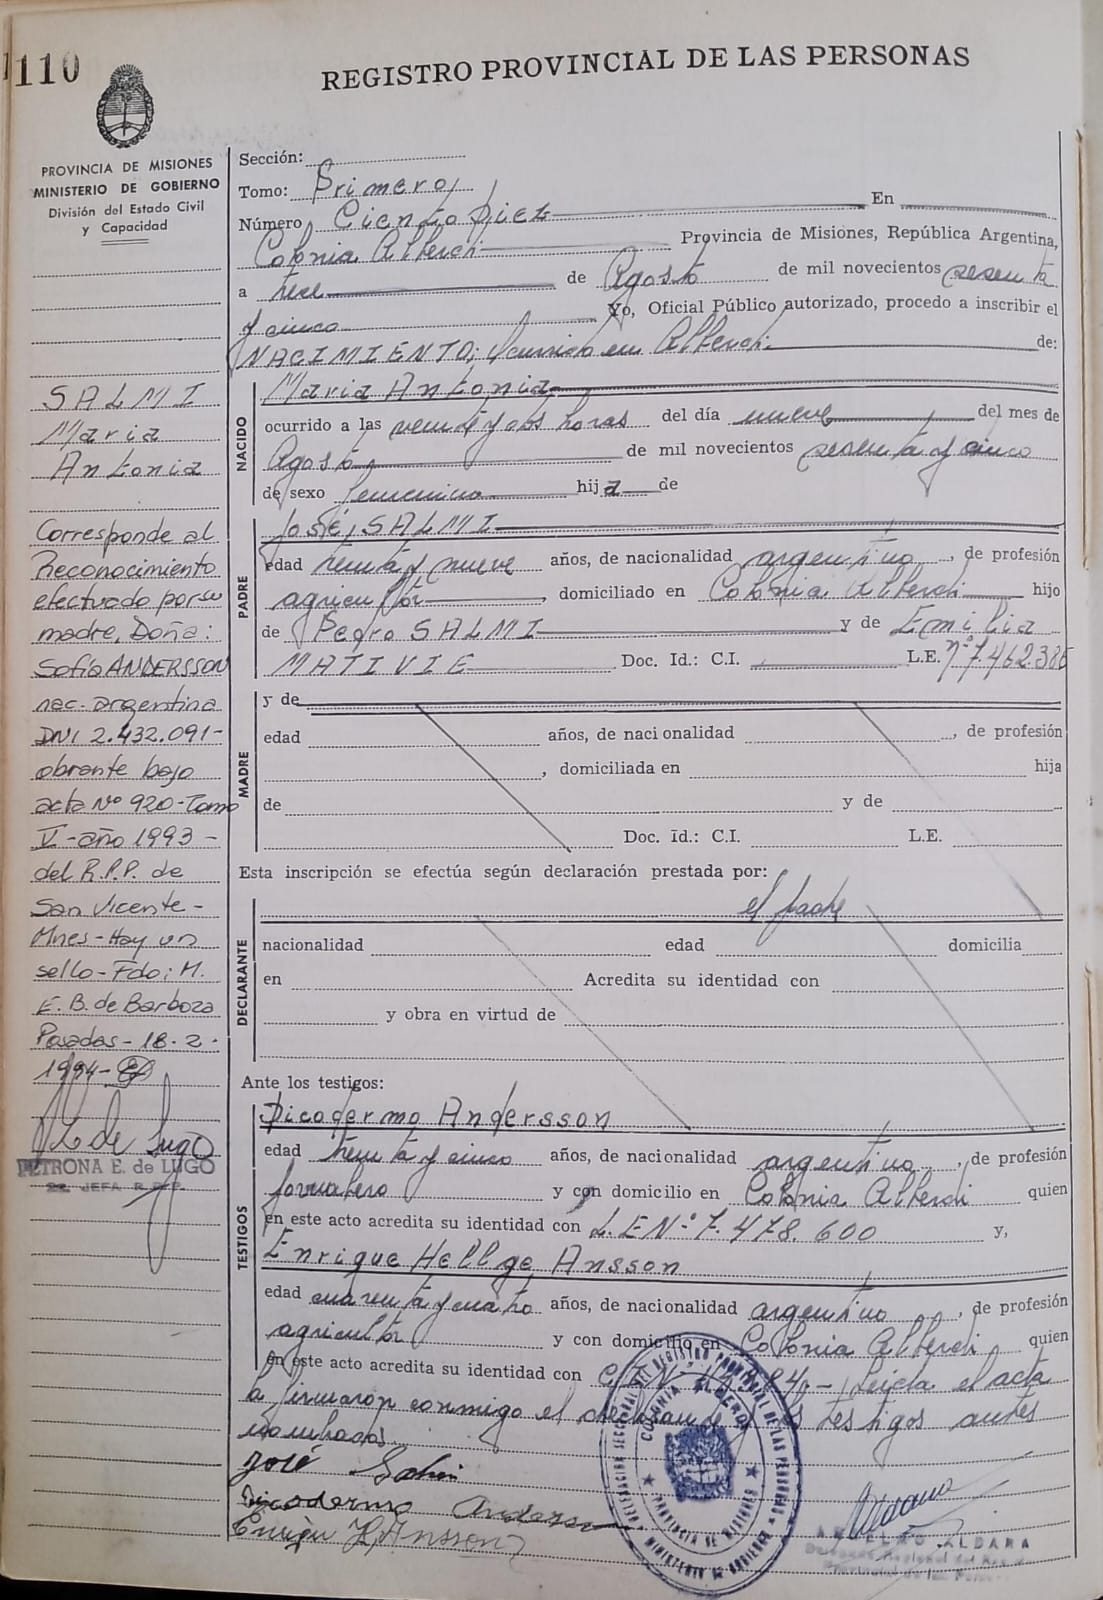 110
REGISTRO PROVINCIAL DE LAS PERSONAS
PROVINCIA DE MISIONES
MINISTERIO DE GOBIERNO
División del Estado Civil
y Capacidad
SALMI
Maria
Antonia
Corresponde al
Reconocimiento
efectuado por su
madre, Doña:
Sofía ANDERSSON
nac. argentina
DNI 2.432.091-
obrante bajo
acta Nº 920-Tomo
V-año 1993-
del R.P.P. de
San Vicente-
Mnes-Hay un
sello-Fdo: M.
E. B. de Barboza
Posadas-18-2-
1994-
de Lugo
PETRONA E. de LUGO
JEFA R.P.P.
Sección:
Tomo: Primero
Número Ciento Diez En
Colonia Alberdi Provincia de Misiones, República Argentina,
a trece de Agosto de mil novecientos sesenta
y cinco Yo, Oficial Público autorizado, procedo a inscribir el
NACIMIENTO; Ocurrido en Alberdi. de:
NACIDO
Maria Antonia
ocurrido a las veinte y dos horas del día nueve del mes de
Agosto de mil novecientos sesenta y cinco
de sexo femenino hija de
PADRE
José, SALMI
edad treinta y nueve años, de nacionalidad argentino, de profesión
agricultor, domiciliado en Colonia Alberdi hijo
de Pedro SALMI y de Emilia
MATIVIE Doc. Id.: C.I. L.E. nº 7.462.385
MADRE
y de
edad años, de nacionalidad , de profesión
, domiciliada en hija
de y de
Doc. Id.: C.I. L.E.
Esta inscripción se efectúa según declaración prestada por:
DECLARANTE
el padre
nacionalidad edad domicilia
en Acredita su identidad con
y obra en virtud de
Ante los testigos:
TESTIGOS
Dicodermo Andersson
edad treinta y cinco años, de nacionalidad argentino, de profesión
jornalero y con domicilio en Colonia Alberdi quien
en este acto acredita su identidad con L.E Nº 7.478.600 y,
Enrique Hellge Ansson
edad cuarenta y cuatro años, de nacionalidad argentino, de profesión
agricultor y con domicilio en Colonia Alberdi quien
en este acto acredita su identidad con C.I.N. Leida el acta
la firmaron conmigo el declarante y los testigos antes
nombrados
José Salmi
Dicodermo Andersson
Enrique H. Ansson
Aldana
ANSELMO ALDANA
DELEGACION SECCIONAL DEL REGISTRO PROVINCIAL DE LAS PERSONAS
COLONIA ALBERDI
PROVINCIA DE MISIONES
MINISTERIO DE GOBIERNO